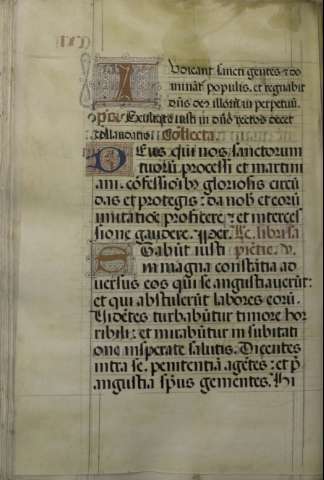 Iudicant sancti gentes et do
minātʳ populis, et regnabit
dn̄s deꝰ illoꝝ in perpetuū.
ps. Exultate iusti in dn̄o rectos decet
collaudatio. Collecta.
Deus qui nos sanctorum
tuorū processi et martini
ani. cōfessiōibꝰ gloriosis circū
das et protegis: da nobis eorū
imitatiōe proficere: et interces
sione gaudere. p̄ter. Lec. lib. sa
Stabūt iusti piētie. v.
in magna constātia ad
versus eos qui se angustiaverūt:
et qui abstulerūt labores eorū.
Vidētes turbabūtur timore hor
ribili: et mirabūtur in subitati
one insperate salutis. Dicentes
intra se. penitentiā agētes: et p̄
angustia sp̄us gementes. Hi